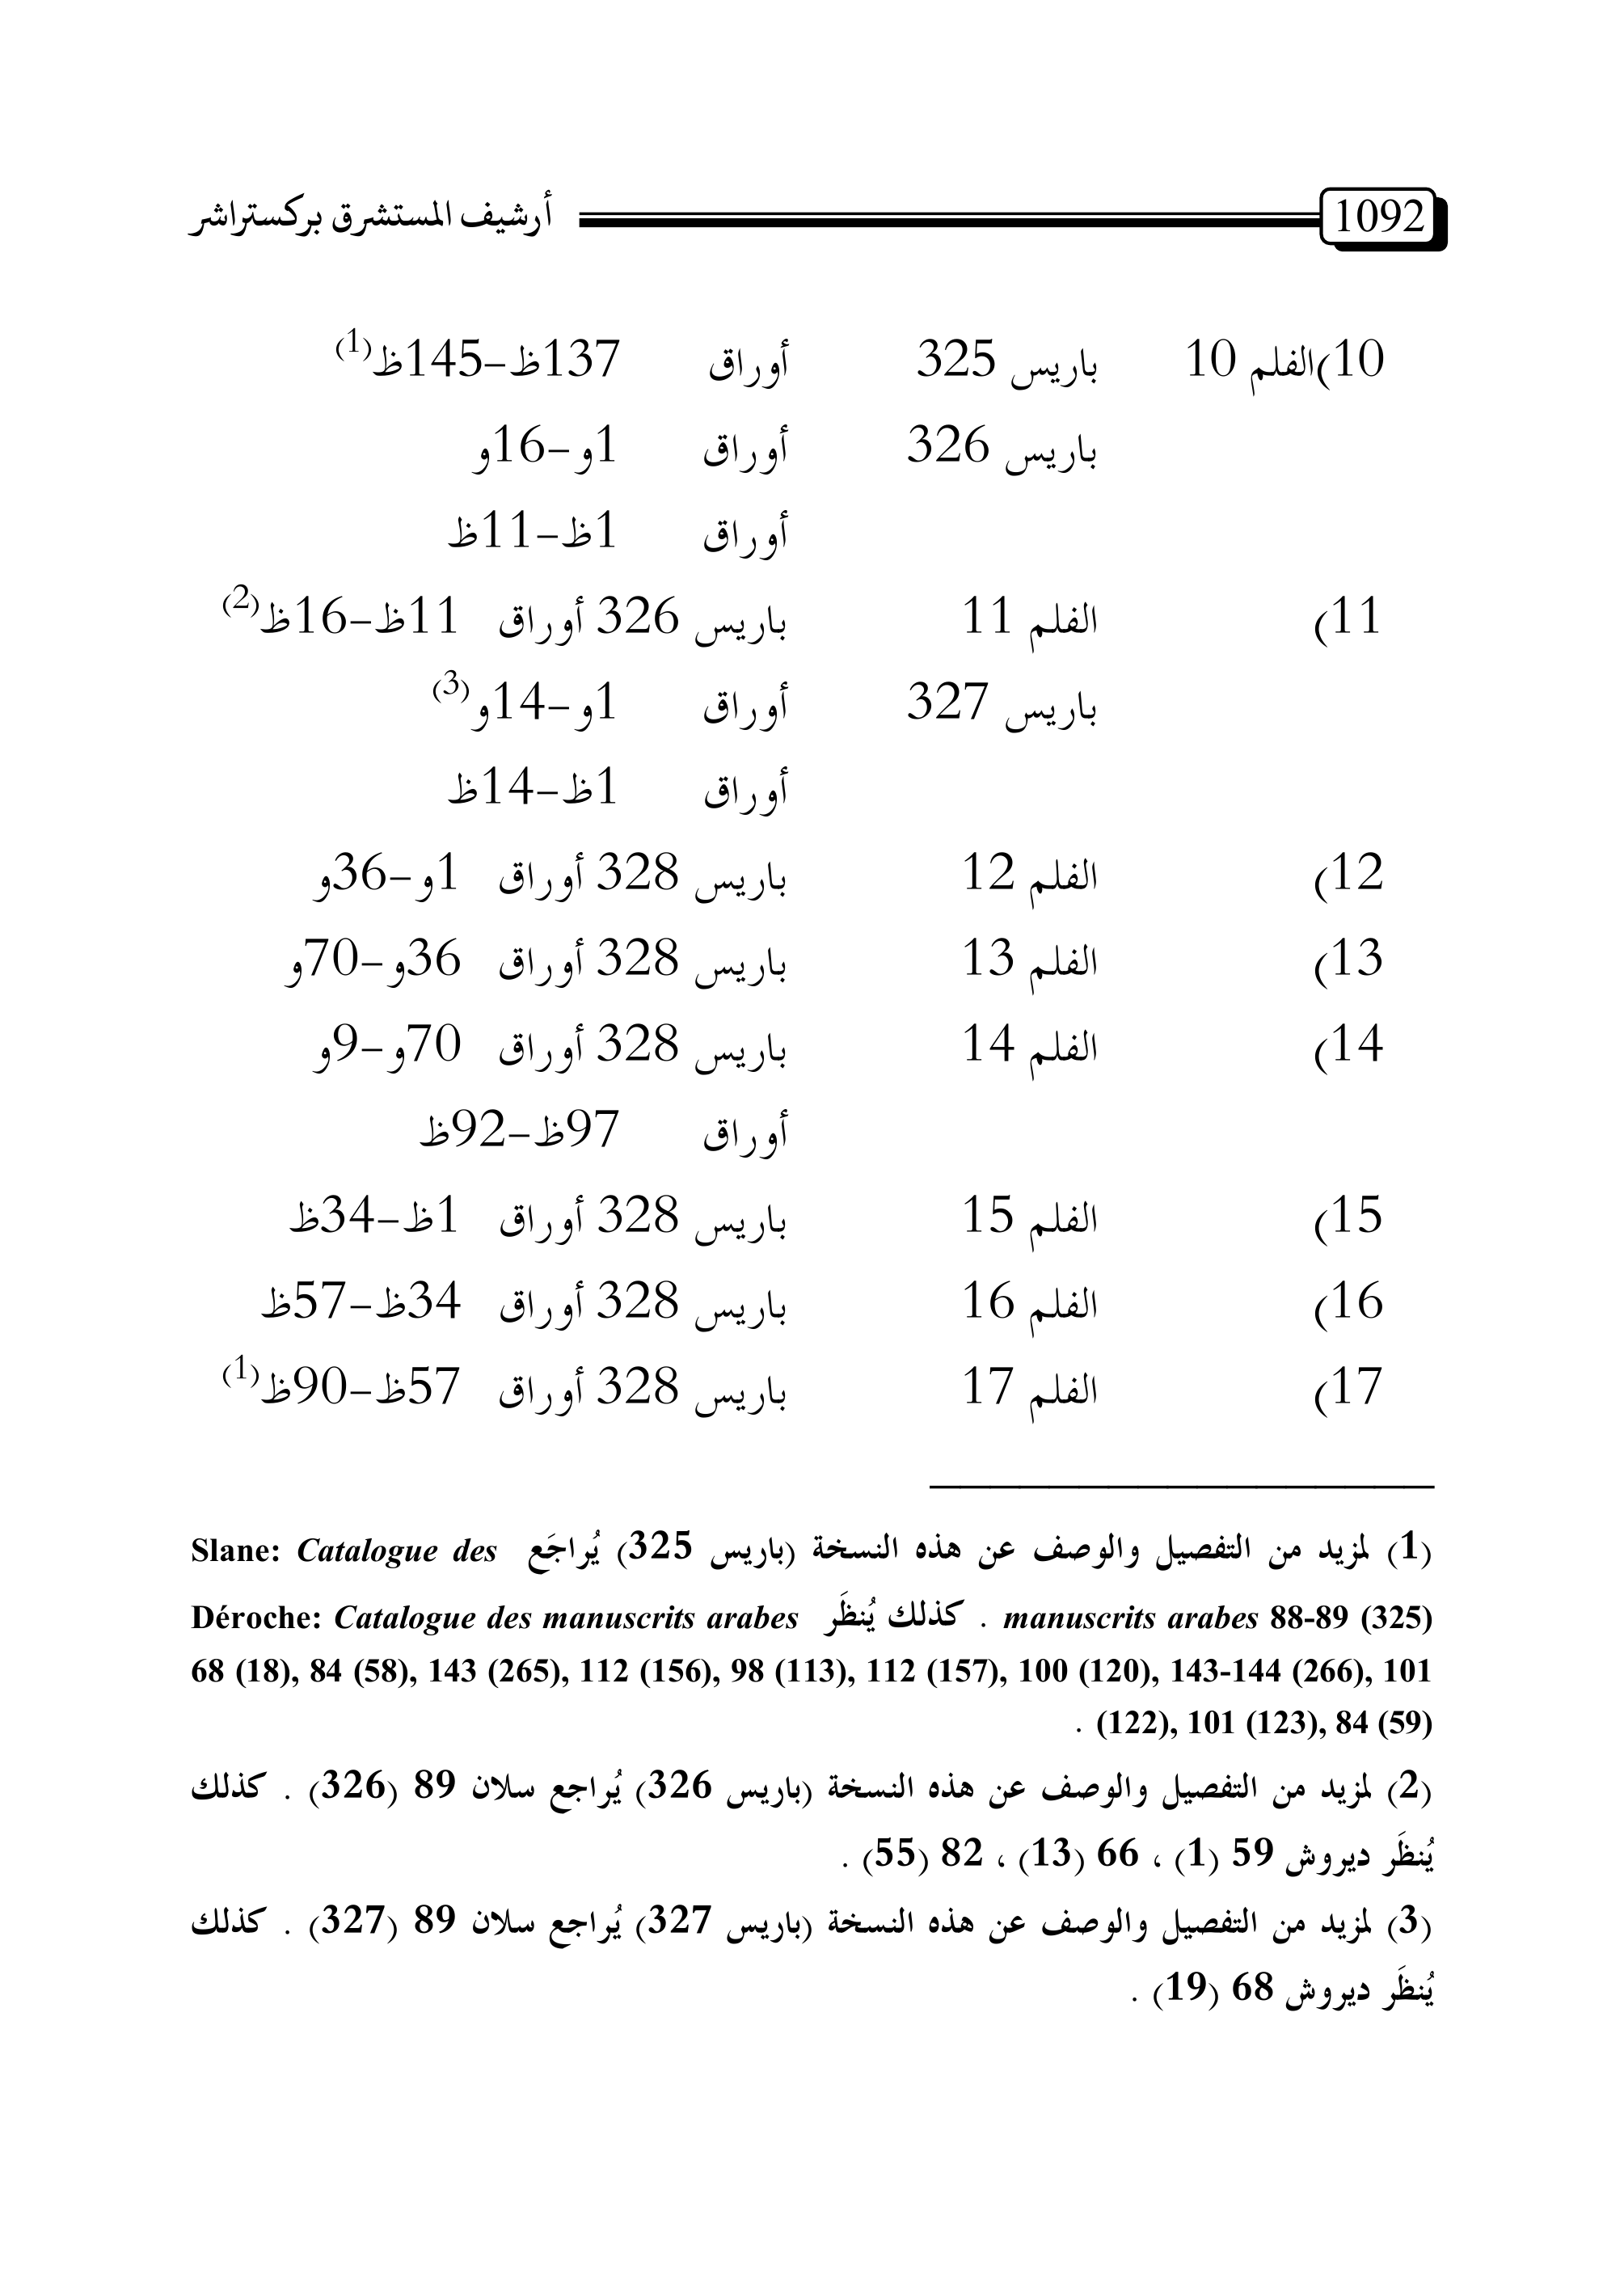 1092 أرشيف المستشرق بركستراشر
10)الفلم 10 باريس 325 أوراق 137ظ–145ظ(1)
باريس 326 أوراق 1و–16و
أوراق 1ظ–11ظ
11) الفلم 11 باريس 326 أوراق 11ظ–16ظ(2)
باريس 327 أوراق 1و–14و(3)
أوراق 1ظ–14ظ
12) الفلم 12 باريس 328 أوراق 1و–36و
13) الفلم 13 باريس 328 أوراق 36و–70و
14) الفلم 14 باريس 328 أوراق 70و–9و
أوراق 97ظ–92ظ
15) الفلم 15 باريس 328 أوراق 1ظ–34ظ
16) الفلم 16 باريس 328 أوراق 34ظ–57ظ
17) الفلم 17 باريس 328 أوراق 57ظ–90ظ(1)
(1) لمزيد من التفصيل والوصف عن هذه النسخة (باريس 325) يُراجَع Slane: Catalogue des
manuscrits arabes 88-89 (325) . كذلك يُنظَر Déroche: Catalogue des manuscrits arabes
68 (18), 84 (58), 143 (265), 112 (156), 98 (113), 112 (157), 100 (120), 143-144 (266), 101
(122), 101 (123), 84 (59) .
(2) لمزيد من التفصيل والوصف عن هذه النسخة (باريس 326) يُراجع سلان 89 (326) . كذلك
يُنظَر ديروش 59 (1) ، 66 (13) ، 82 (55) .
(3) لمزيد من التفصيل والوصف عن هذه النسخة (باريس 327) يُراجع سلان 89 (327) . كذلك
يُنظَر ديروش 68 (19) .